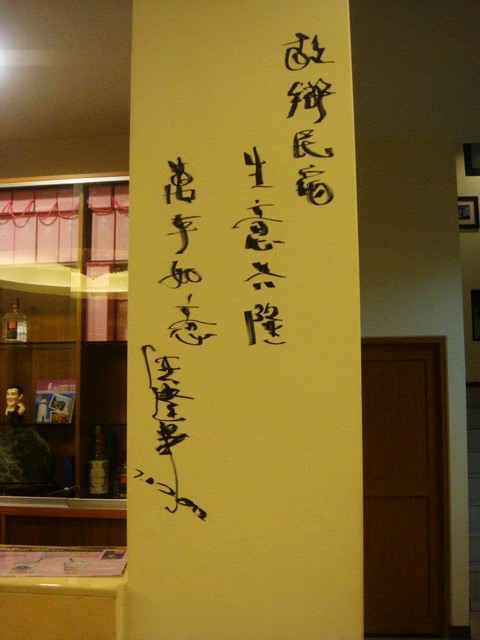 故鄉民宿
生意興隆
萬事如意